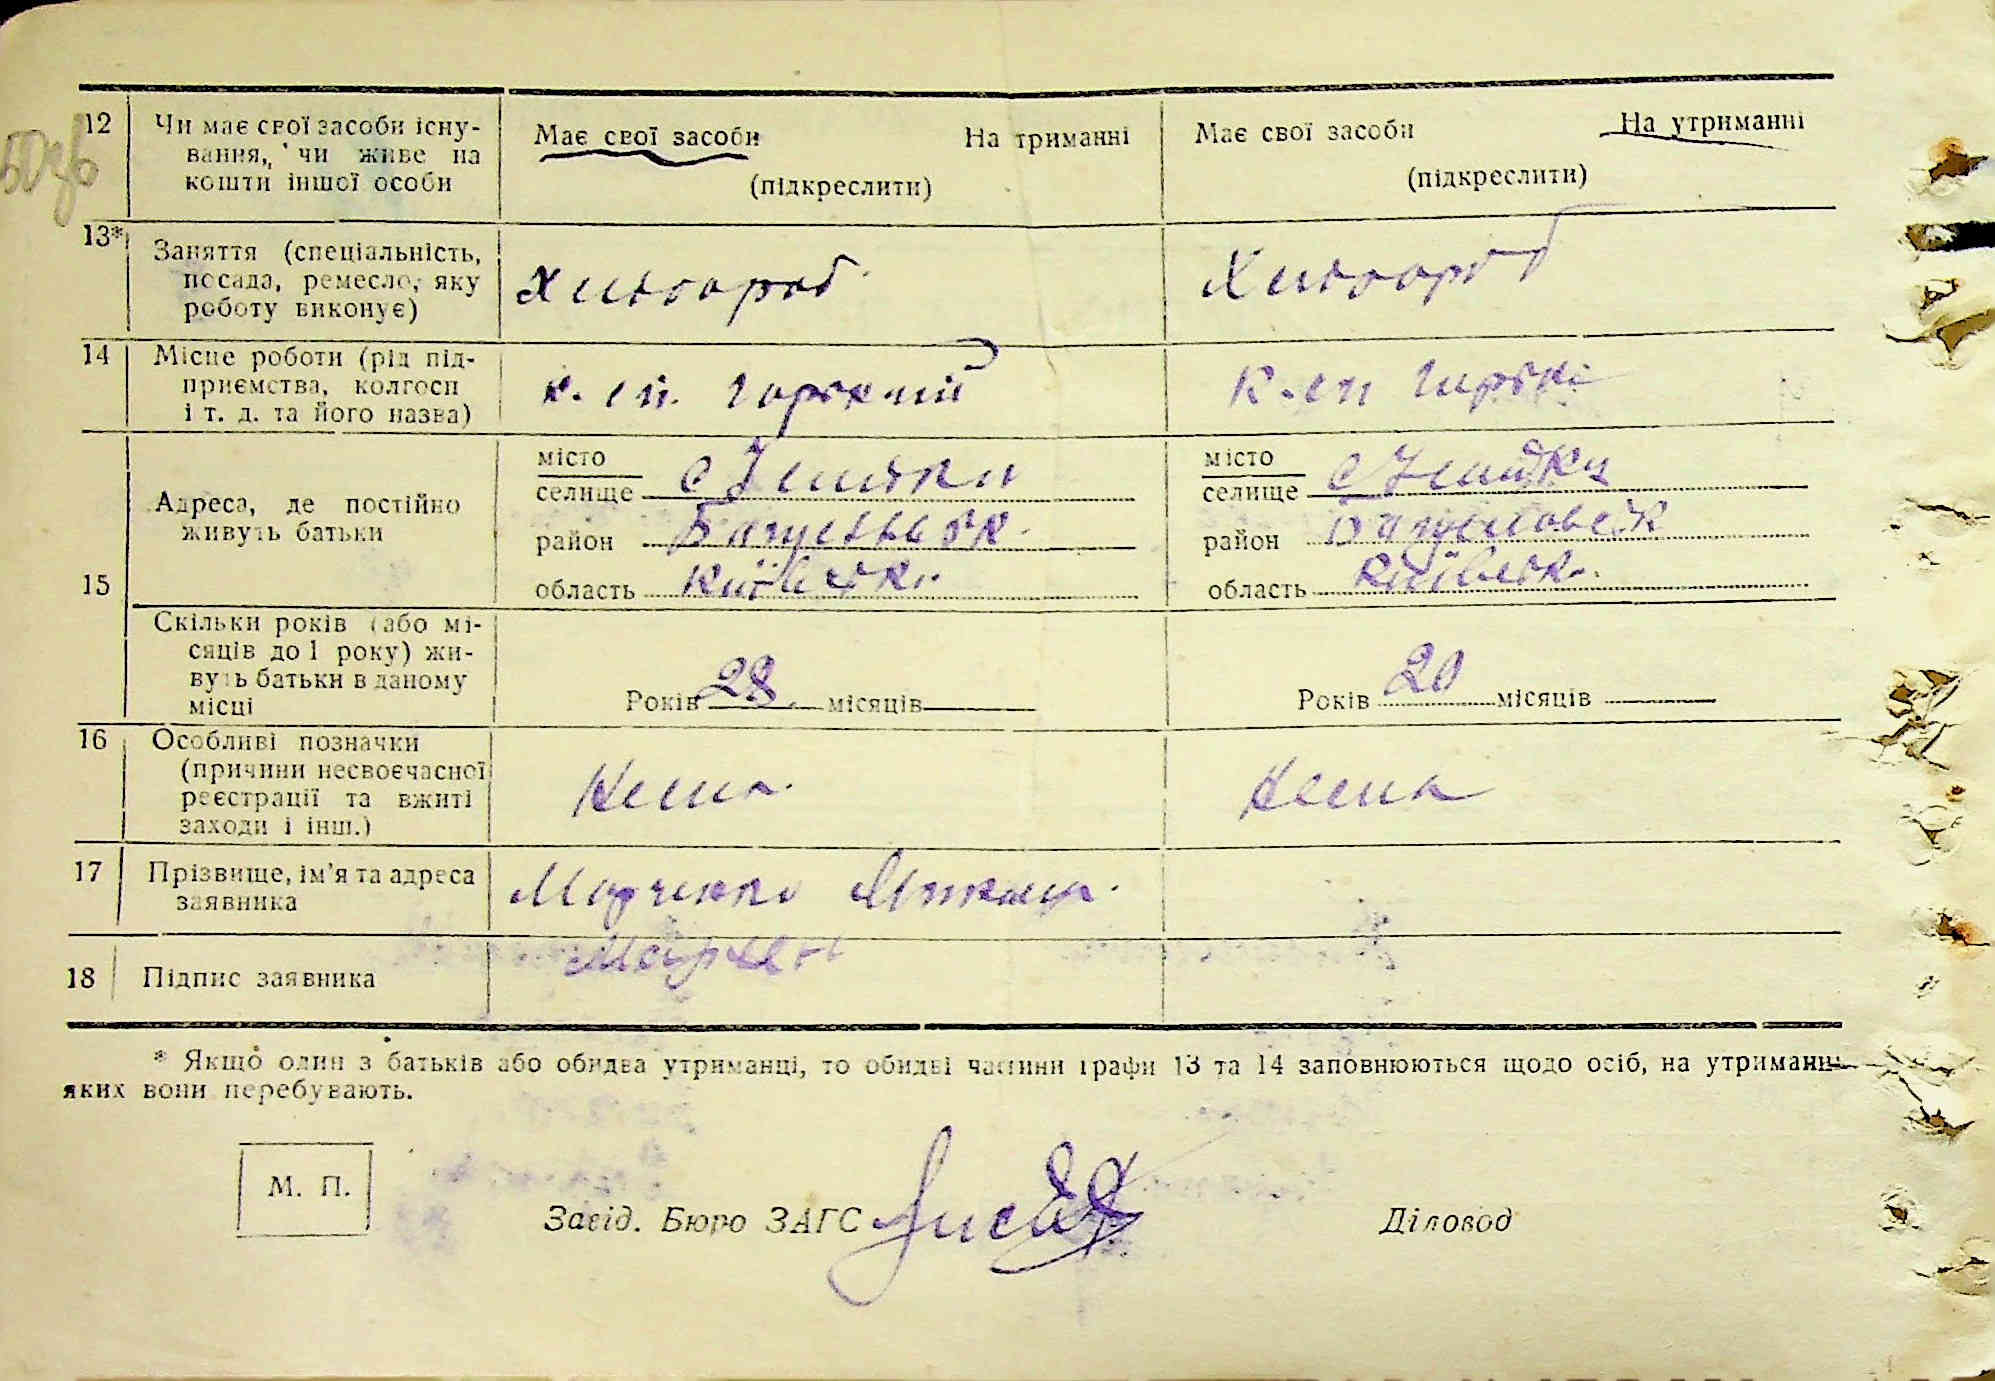 12 Чи має свої засоби існу-
вання, чи живе на
кошти іншої особи
Має свої засоби На триманні
(підкреслити)
Має свої засоби На утриманні
(підкреслити)
13* Заняття (спеціальність,
посада, ремесло, яку
роботу виконує)
Хлібороб
Хлібороб
14 Місце роботи (рід під-
приємства, колгосп
і т. д. та його назва)
к-сп. Горький
к-сп Горьк
15
Адреса, де постійно
живуть батьки
місто
селище
район
область Київськ.
місто
селище
район
область Київськ.
Скільки років (або мі-
сяців до 1 року) жи-
вуть батьки в даному
місці
Років 28 місяців
Років 20 місяців
16 Особливі позначки
(причини несвоєчасної
реєстрації та вжиті
заходи і інш.)
Нема.
Нема
17 Прізвище, ім'я та адреса
заявника
Марченко
18 Підпис заявника
* Якщо один з батьків або обидва утриманці, то обидві частини графи 13 та 14 заповнюються щодо осіб, на утриманні
яких вони перебувають.
М. П.
Завід. Бюро ЗАГС
Діловод